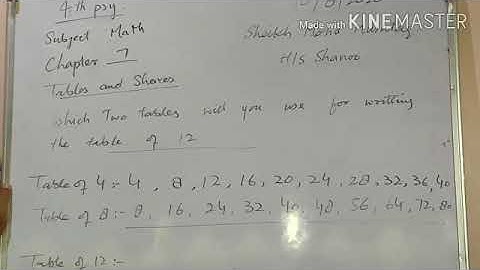 4th psy.
Made with KINEMASTER
Subject Math
Chapter 7
H/S Shanoo
Tables and Shares
which Two tables will you use for writting
the table of 12
Table of 4:- 4, 8, 12, 16, 20, 24, 28, 32, 36, 40
Table of 8:- 8, 16, 24, 32, 40, 48, 56, 64, 72, 80
Table of 12:-